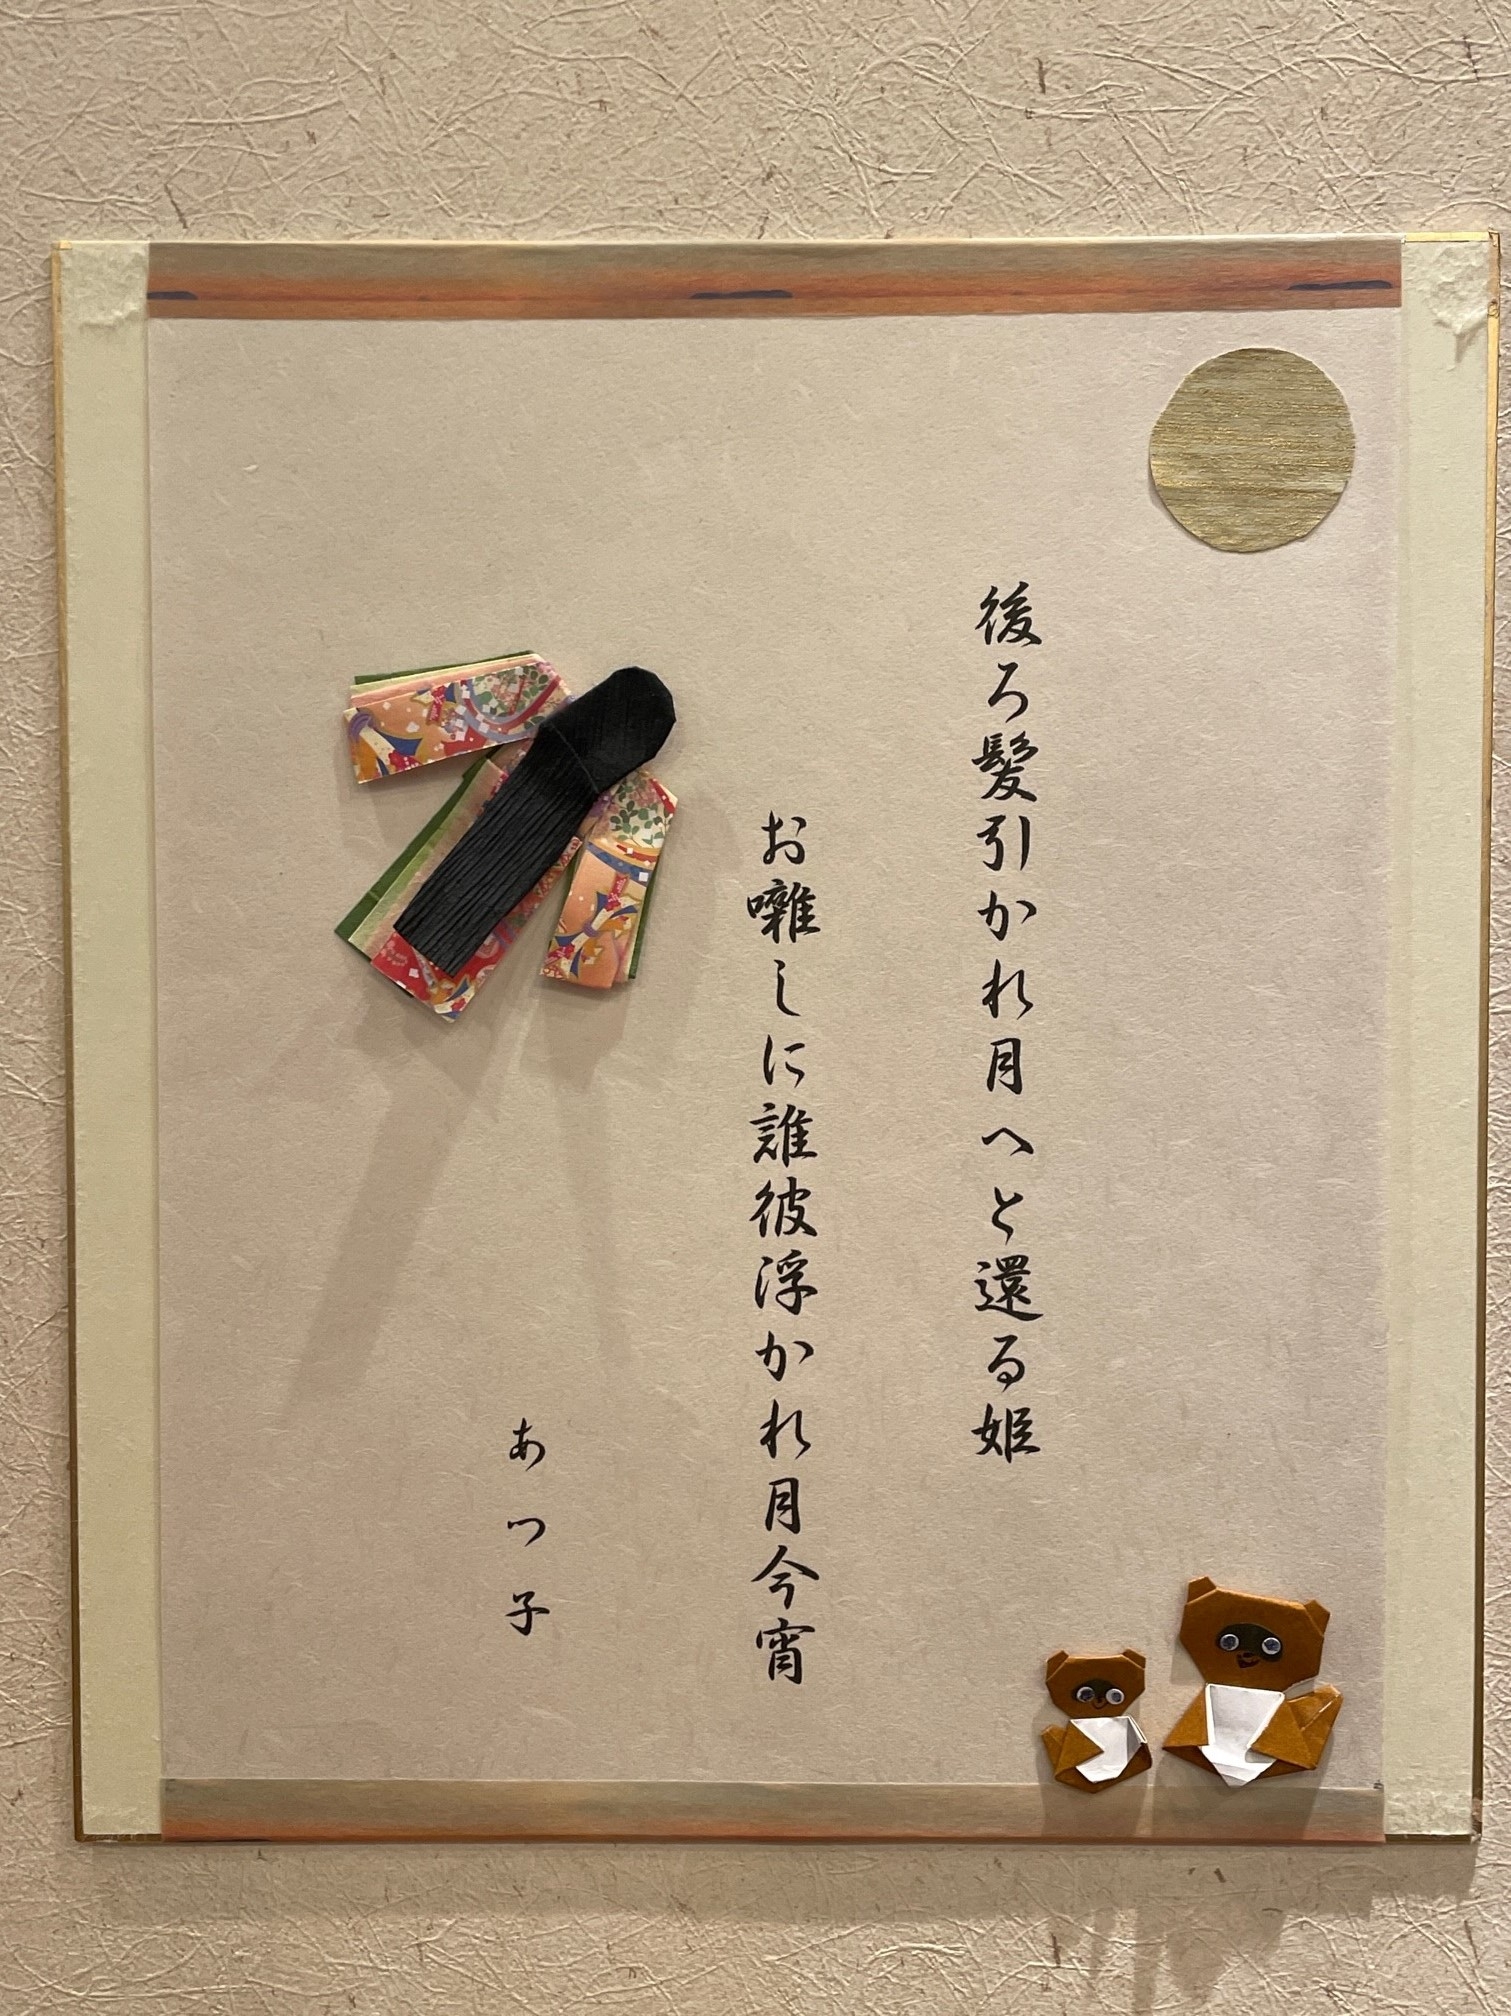 後ろ髪引かれ月へと還る姫
お囃しに誰彼浮かれ月今宵
あつ子